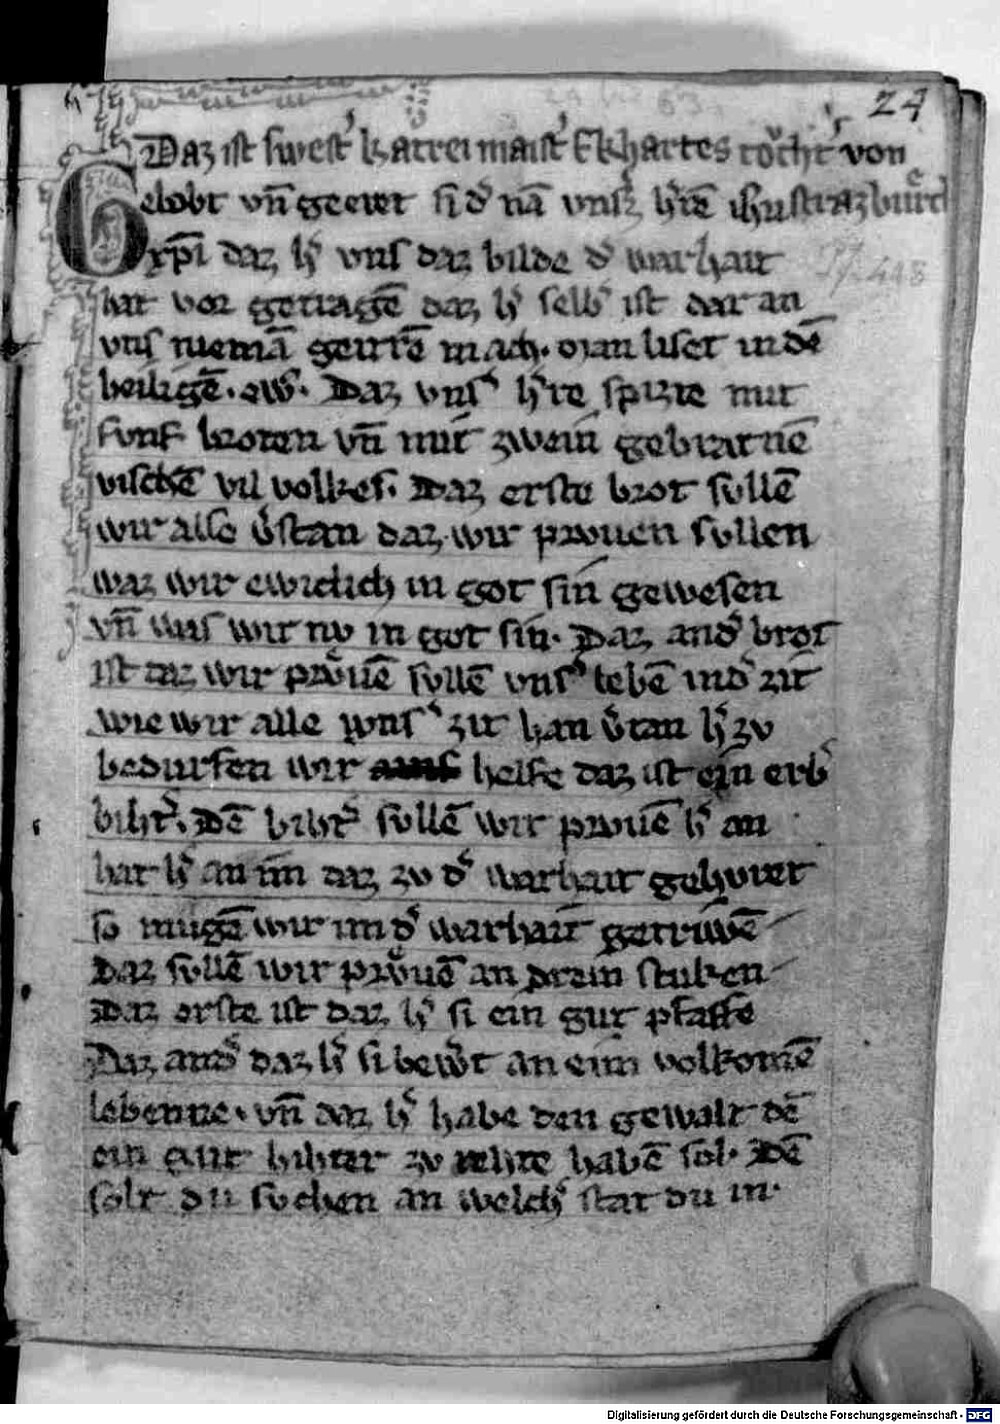 24
Daz ist swest' katrei maist' Ekhartes toͤcht' von
Gelobt vn̄ geeret si d' nā vnsz h'rē ihu strazburch
xp̄i daz h' vns daz bilde d' warhait
hat vor getragē daz h' selb' ist dar an
vns niemā geirrē mach. Man liset in dē
heiligē. ew'. Daz vns' h're spizte mit
funf broten vn̄ mit zwein gebratnē
vischē vil volkes. Daz erste brot sullē
wir alse v'stan daz wir prwuen sullen
waz wir ewiclich in got sin gewesen
vn̄ was wir nw in got sin. Daz and' brot
ist daz wir prwuē sullē vns' lebē in d' zit
wie wir alle vns' zit han v'tan h' zv
bedurfen wir helfe daz ist ein erb'
biht'. Dē biht' sullē wir prwuē h' an
hat h' an im daz zv d' warhait gehoret
so mugē wir im d' warhait getriwē
Daz sullē wir prwuē an drein stuken
Daz erste ist daz h' si ein gut pfaffe
Daz and' daz h' si bew't an eim volkomē
lebenne. vn̄ daz h' habe den gewalt dē
ein gut bihter zv rehte habē sol. Dē
solt du suchen an welch' stat du in.
Digitalisierung gefördert durch die Deutsche Forschungsgemeinschaft - DFG